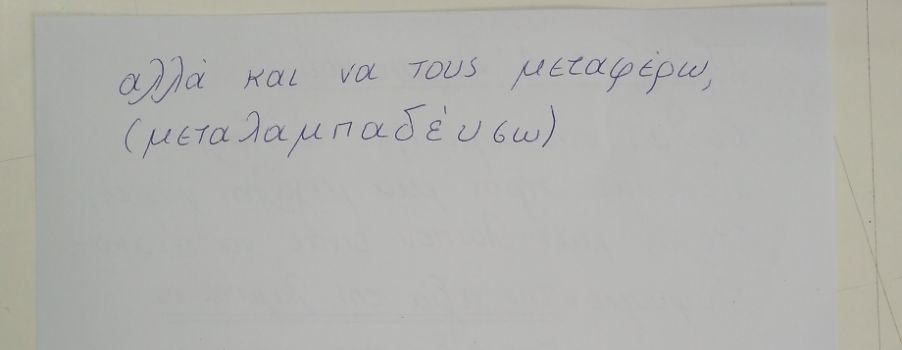 αλλά και να τους μεταφέρω,
(μεταλαμπαδέυσω)